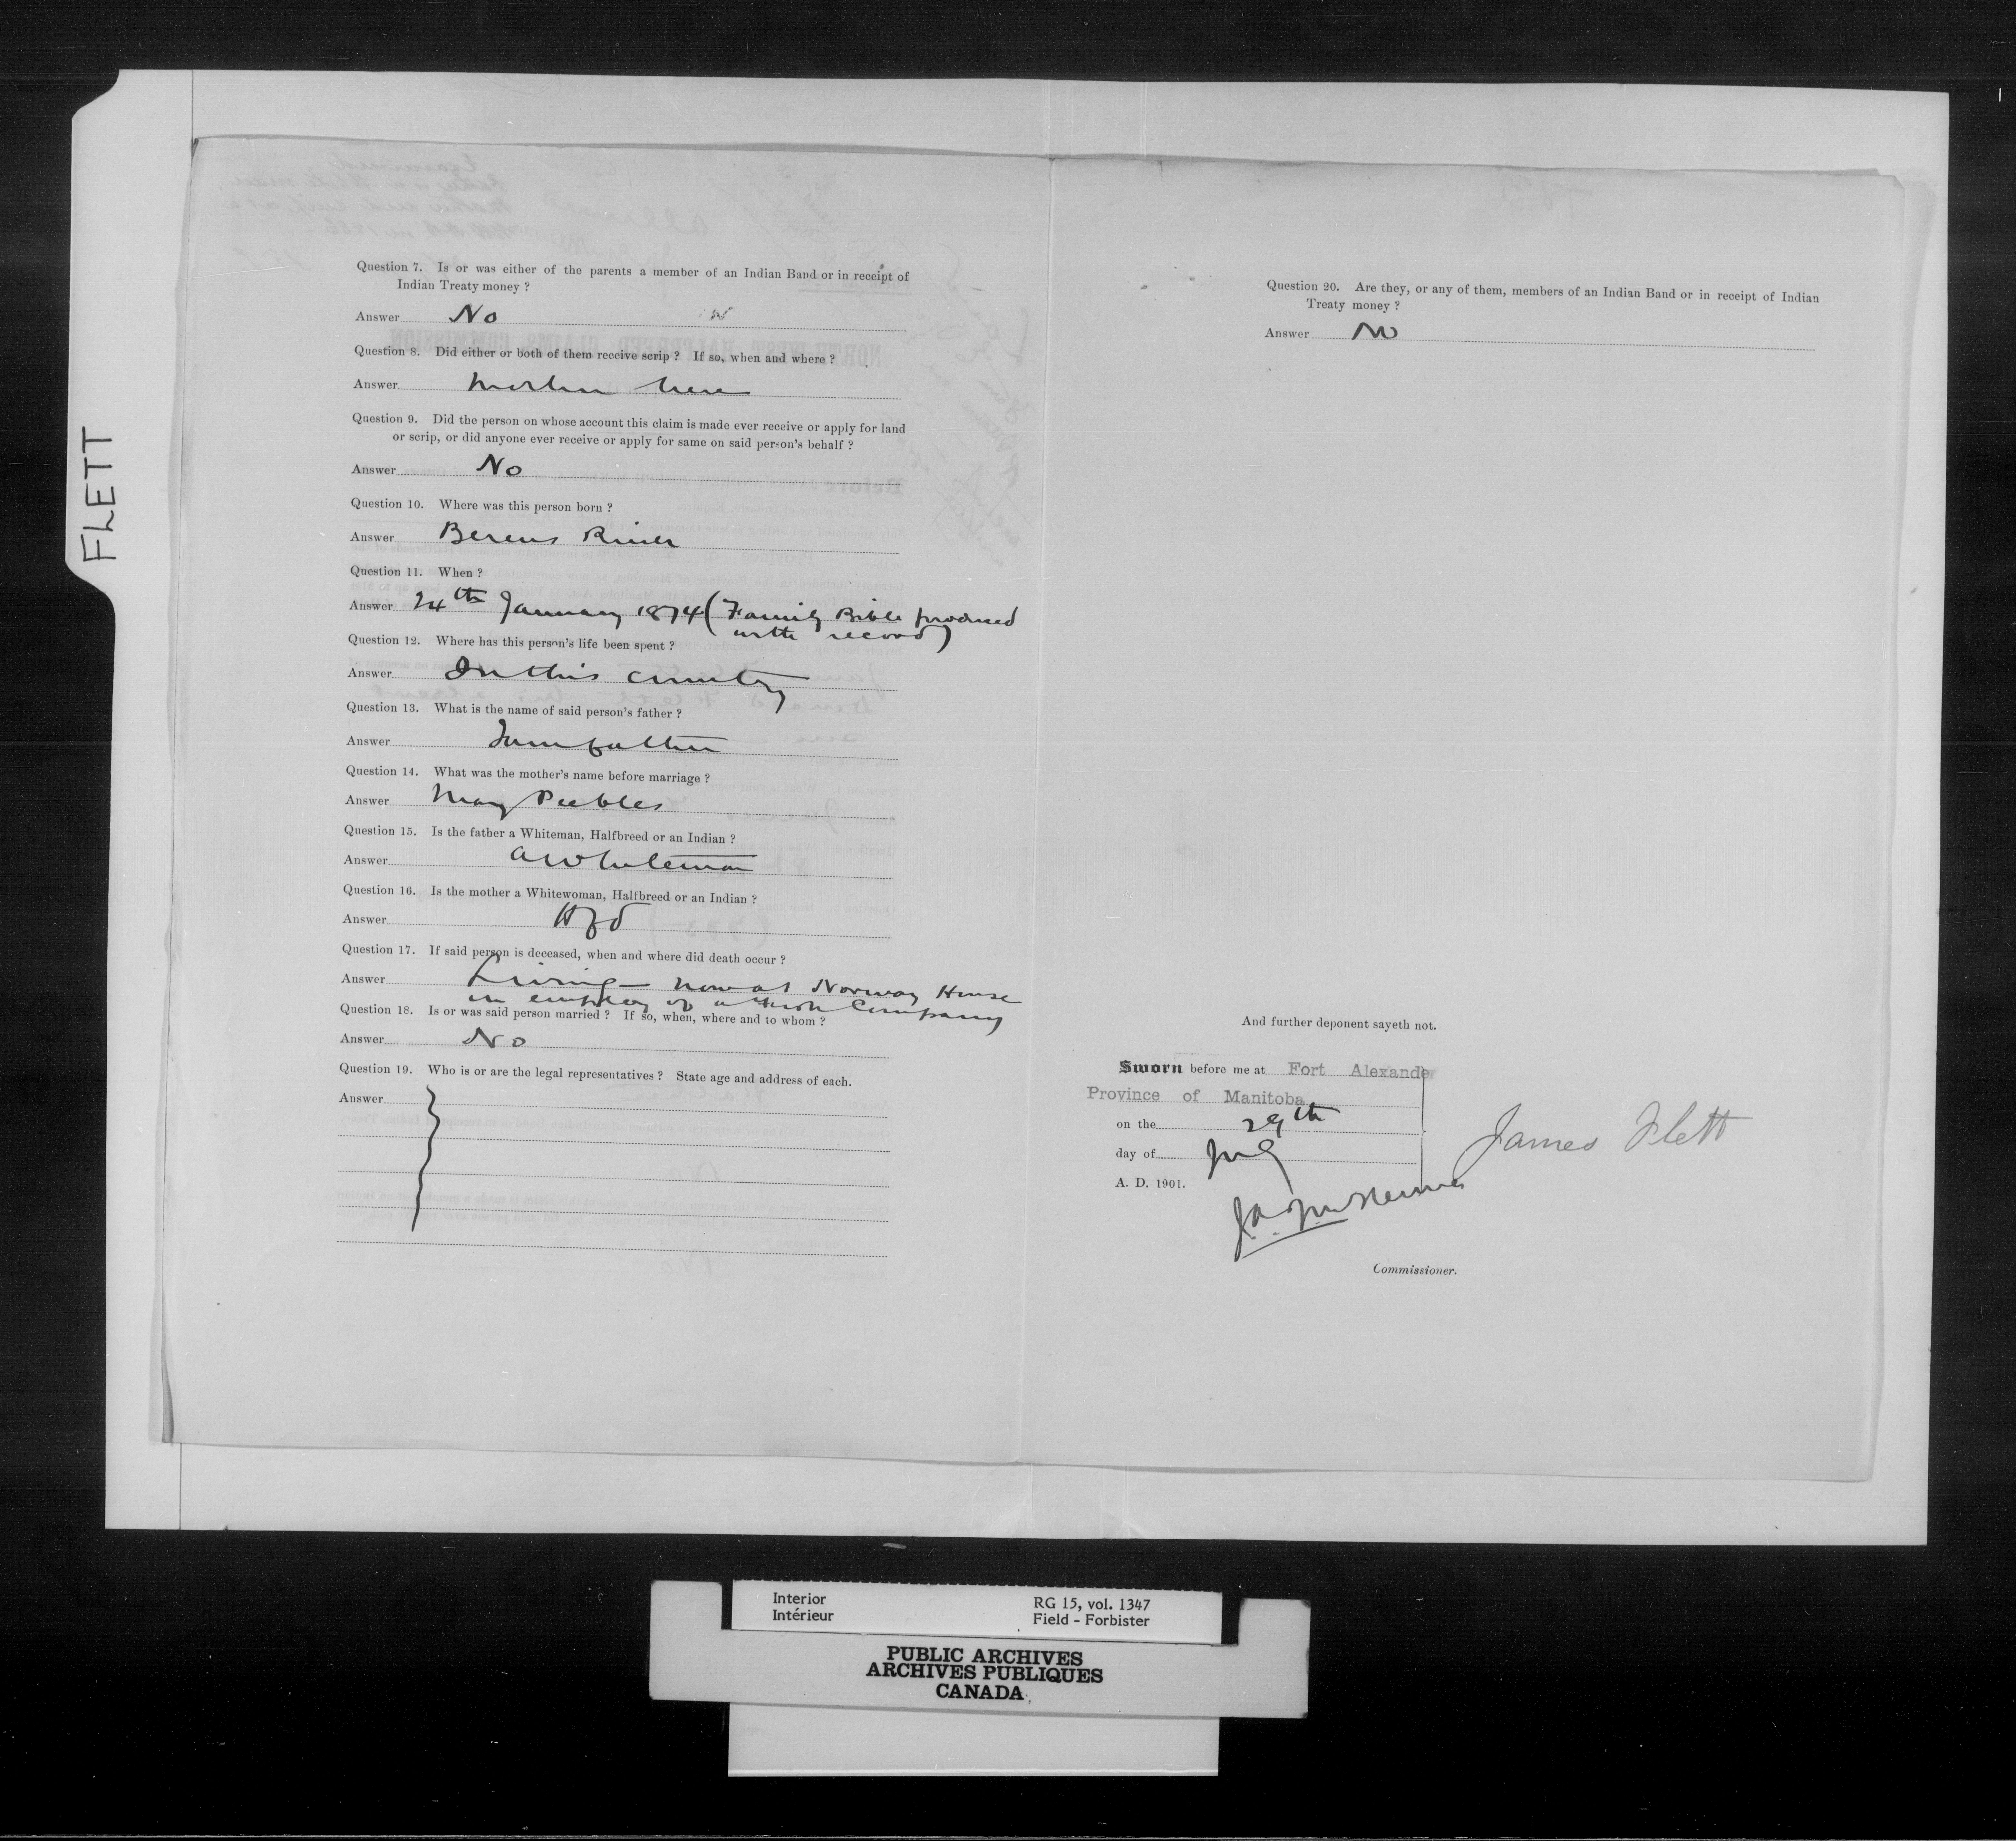 FLETT
Question 7. Is or was either of the parents a member of an Indian Band or in receipt of
Indian Treaty money ?
Answer No
Question 8. Did either or both of them receive scrip ? If so, when and where ?
Answer Mother here
Question 9. Did the person on whose account this claim is made ever receive or apply for land
or scrip, or did anyone ever receive or apply for same on said person's behalf ?
Answer No
Question 10. Where was this person born ?
Answer Berens River
Question 11. When ?
Answer 24th January 1874 (Family Bible produced
with record)
Question 12. Where has this person's life been spent ?
Answer In this country
Question 13. What is the name of said person's father ?
Answer I am father
Question 14. What was the mother's name before marriage ?
Answer Mary Peebles
Question 15. Is the father a Whiteman, Halfbreed or an Indian ?
Answer A Whiteman
Question 16. Is the mother a Whitewoman, Halfbreed or an Indian ?
Answer Hfd
Question 17. If said person is deceased, when and where did death occur ?
Answer Living – now at Norway House
in employ of a Company
Question 18. Is or was said person married ? If so, when, where and to whom ?
Answer No
Question 19. Who is or are the legal representatives ? State age and address of each.
Answer
Question 20. Are they, or any of them, members of an Indian Band or in receipt of Indian
Treaty money ?
Answer No
And further deponent sayeth not.
Sworn before me at Fort Alexander
Province of Manitoba
on the 29th
day of
A. D. 1901.
James Flett
Commissioner.
Interior
Intérieur
RG 15, vol. 1347
Field - Forbister
PUBLIC ARCHIVES
ARCHIVES PUBLIQUES
CANADA